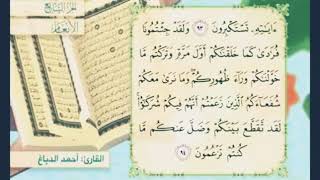 الجزء السابع
الأنعام
ءَايَٰتِهِۦ تَسْتَكْبِرُونَ ٩٣ وَلَقَدْ جِئْتُمُونَا
فُرَٰدَىٰ كَمَا خَلَقْنَٰكُمْ أَوَّلَ مَرَّةٍ وَتَرَكْتُم مَّا
خَوَّلْنَٰكُمْ وَرَآءَ ظُهُورِكُمْ وَمَا نَرَىٰ مَعَكُمْ
شُفَعَآءَكُمُ ٱلَّذِينَ زَعَمْتُمْ أَنَّهُمْ فِيكُمْ شُرَكَٰٓؤُا۟
لَقَد تَّقَطَّعَ بَيْنَكُمْ وَضَلَّ عَنكُم مَّا
كُنتُمْ تَزْعُمُونَ ٩٤
القارئ: أحمد الدباغ